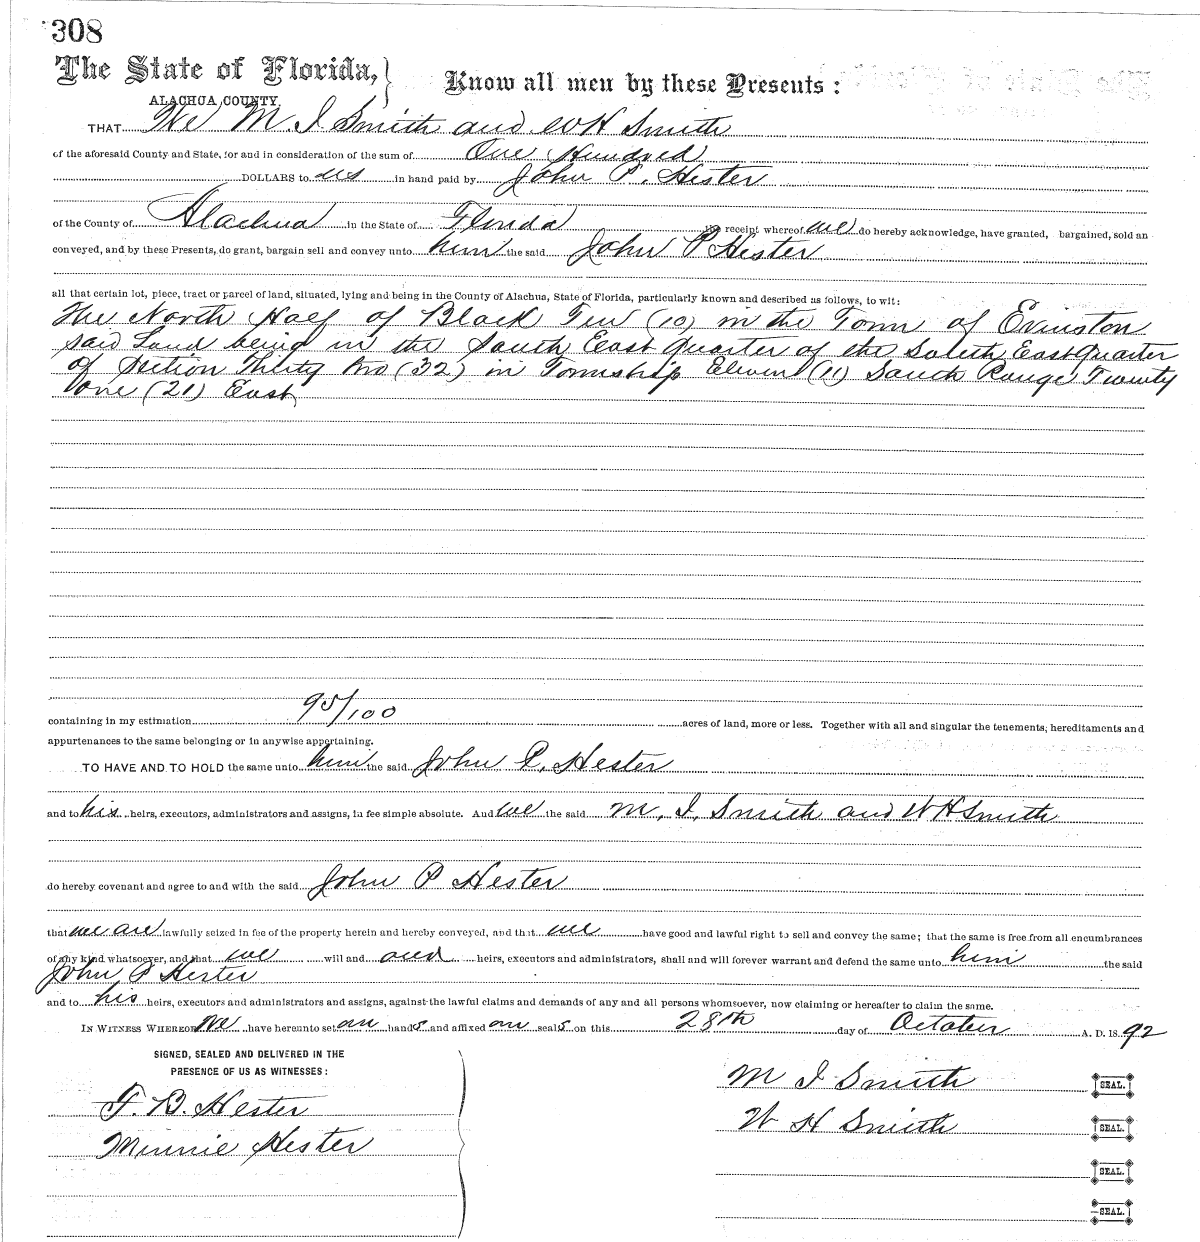 308
The State of Florida,
ALACHUA COUNTY.
Know all men by these Presents:
THAT We M. I Smith and W H Smith
of the aforesaid County and State, for and in consideration of the sum of One Hundred
DOLLARS to us in hand paid by John P. Hester
of the County of Alachua in the State of Florida the receipt whereof we do hereby acknowledge, have granted, bargained, sold an
conveyed, and by these Presents, do grant, bargain sell and convey unto him the said John P Hester
all that certain lot, piece, tract or parcel of land, situated, lying and being in the County of Alachua, State of Florida, particularly known and described as follows, to wit:
The North Half of Block Ten (10) in the Town of Evinston
said Land being in the South East quarter of the South East quarter
of Section Thirty two (32) in Township Eleven (11) South Range Twenty
one (21) East
containing in my estimation 95/100 acres of land, more or less. Together with all and singular the tenements, hereditaments and
appurtenances to the same belonging or in anywise appertaining.
TO HAVE AND TO HOLD the same unto him the said John P. Hester
and to his heirs, executors, administrators and assigns, in fee simple absolute. And we the said M. I. Smith and W H Smith
do hereby covenant and agree to and with the said John P Hester
that we are lawfully seized in fee of the property herein and hereby conveyed, and that we have good and lawful right to sell and convey the same; that the same is free from all encumbrances
of any kind whatsoever, and that we will and our heirs, executors and administrators, shall and will forever warrant and defend the same unto him the said
John P Hester
and to his heirs, executors and administrators and assigns, against the lawful claims and demands of any and all persons whomsoever, now claiming or hereafter to claim the same.
IN WITNESS WHEREOF We have hereunto set our hands and affixed our seals on this 28th day of October A. D. 18 92
SIGNED, SEALED AND DELIVERED IN THE
PRESENCE OF US AS WITNESSES:
F. B. Hester
Minnie Hester
M I Smith SEAL.
W H Smith SEAL.
SEAL.
SEAL.